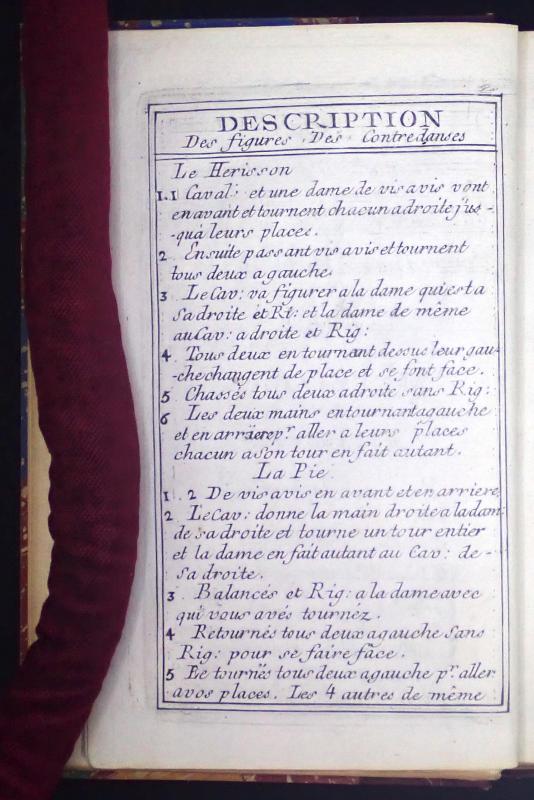 DESCRIPTION
Des figures Des Contredanses
Le Herisson
1.1 Caval: et une dame de vis avis vont
en avant et tournent chacun a droite jus-
-qua leurs places.
2 Ensuite passant vis avis et tournent
tous deux a gauche
3 Le Cav: va figurer a la dame qui est a
sa droite et Ri: et la dame de même
au Cav: a droite et Rig:
4 Tous deux en tournant dessus leur gau-
-che changent de place et se font face.
5 Chassés tous deux a droite sans Rig:
6 Les deux mains en tournant a gauche
et en arriere pr. aller a leurs places
chacun a son tour en fait autant.
La Pie
1.2 De vis avis en avant et en arriere
2 Le Cav: donne la main droite a la dam:
de sa droite et tourne un tour entier
et la dame en fait autant au Cav: de -
sa droite.
3 Balancés et Rig: a la dame avec
qui vous avés tournéz.
4 Retournés tous deux a gauche sans
Rig: pour se faire face.
5 Ee tournés tous deux a gauche pr. aller
a vos places. Les 4 autres de même